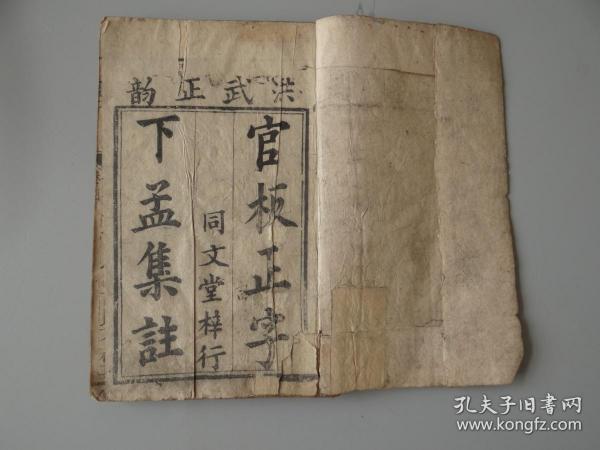 洪武正韵
官板正字
同文堂梓行
下孟集註
孔夫子旧书网
www.kongfz.com